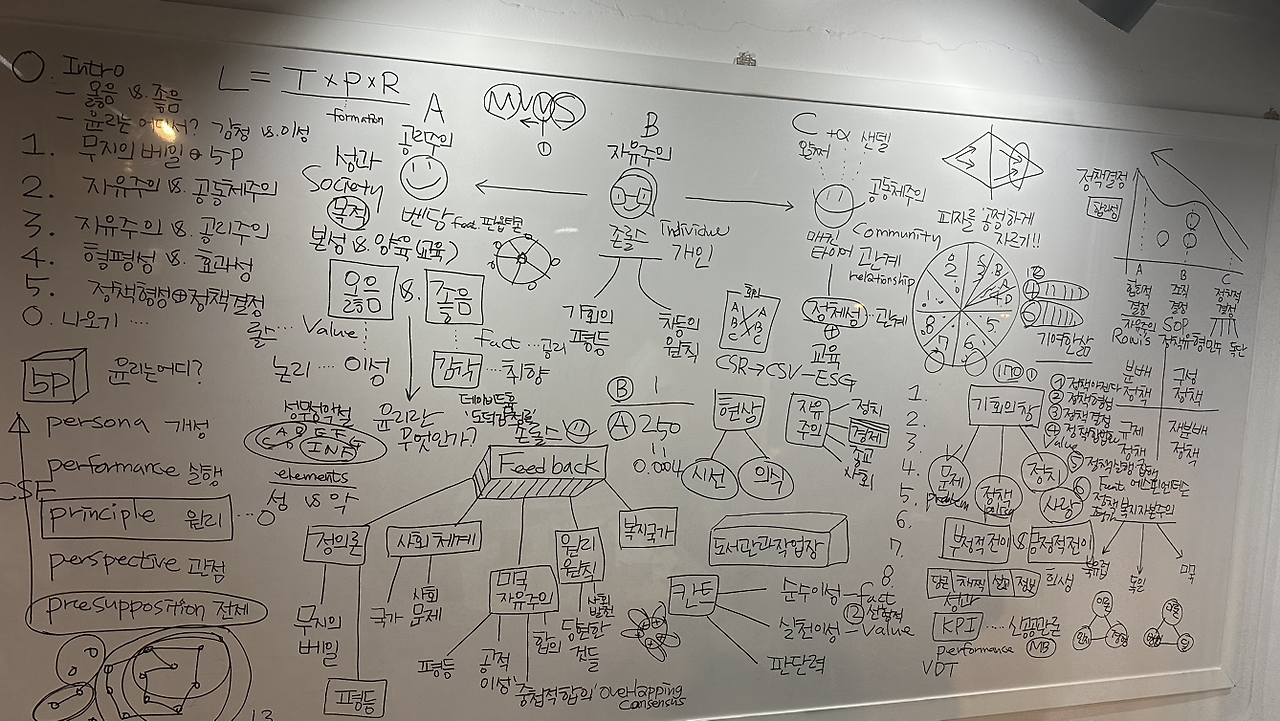 0. Intro
- 옳음 vs. 좋음
- 윤리는 어디서? 감정 vs. 이성
1. 무지의 베일 + 5P
2. 자유주의 vs. 공동체주의
3. 자유주의 vs. 공리주의
4. 형평성 vs. 효과성
5. 정책형성+정책결정
0. 나오기 ...
L = T × P × R
formation
A
공리주의
성과
Society
목적
벤담
본성 vs. 양육(교육)
옳음 vs. 좋음
롤스 ... Value
Fact ... 공리
논리 ... 이성
감각 ... 취향
M W S
①
B
자유주의
존롤스
Individue
개인
기회의
평등
차등의
원칙
C
+α 샌델
왈쩌
공동체주의
Community
매킨
타이어
관계
relationship
정체성 ... 관계
+
교육
A B C
A B C
CSR → CSV - ESG
피자를 '공정하게
자르기!!
기여한 삶
정책결정
합리성
A B C
합리적
결정
조직
결정
정치적
결정
SOP
Rowi's
분배
정책
구성
정책
규제
정책
재분배
정책
5P
윤리는어디?
persona 개성
performance 실행
principle 원리
perspective 관점
presupposition 전제
CSF
성무성악설
elements
성 vs 악
윤리란
무엇인가?
데이비드흄
'도덕감정론'
존롤스
Feedback
정의론
무지의
베일
평등
사회체제
국가
사회
문제
미국
자유주의
평등
공적
이성
합의
'중첩적합의' overlapping
consensus
원리
원칙
사회
발전
당연한
것들
복지국가
Ⓑ 1
Ⓐ 250
=
0.004
현상
시선
의식
자유
주의
정치
경제
종교
사회
도서관과작업장
칸트
순수이성 - fact
② 선험적
실천이성 - Value
판단력
1.
2.
3.
4.
5.
6.
7.
8.
기회의창
문제
problem
정책
policy
정치
사랑
② 정책형성
③ 정책결정
Value
Fact
복지자본주의
부정적전이 vs 긍정적전이
희생
북유럽
독일
미국
KPI ... 신공공관리
performance MB
VDT
이론
경험